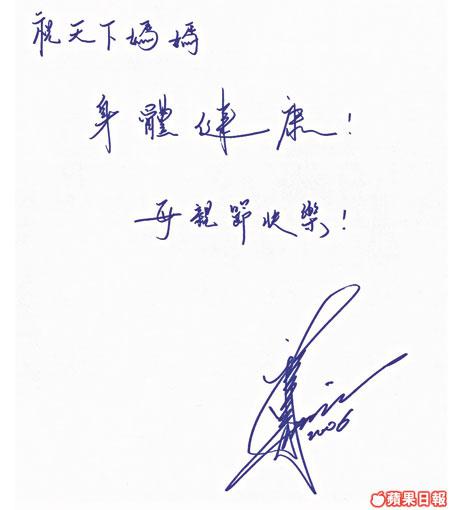 祝天下媽媽
身體健康!
母親節快樂!
2006
蘋果日報